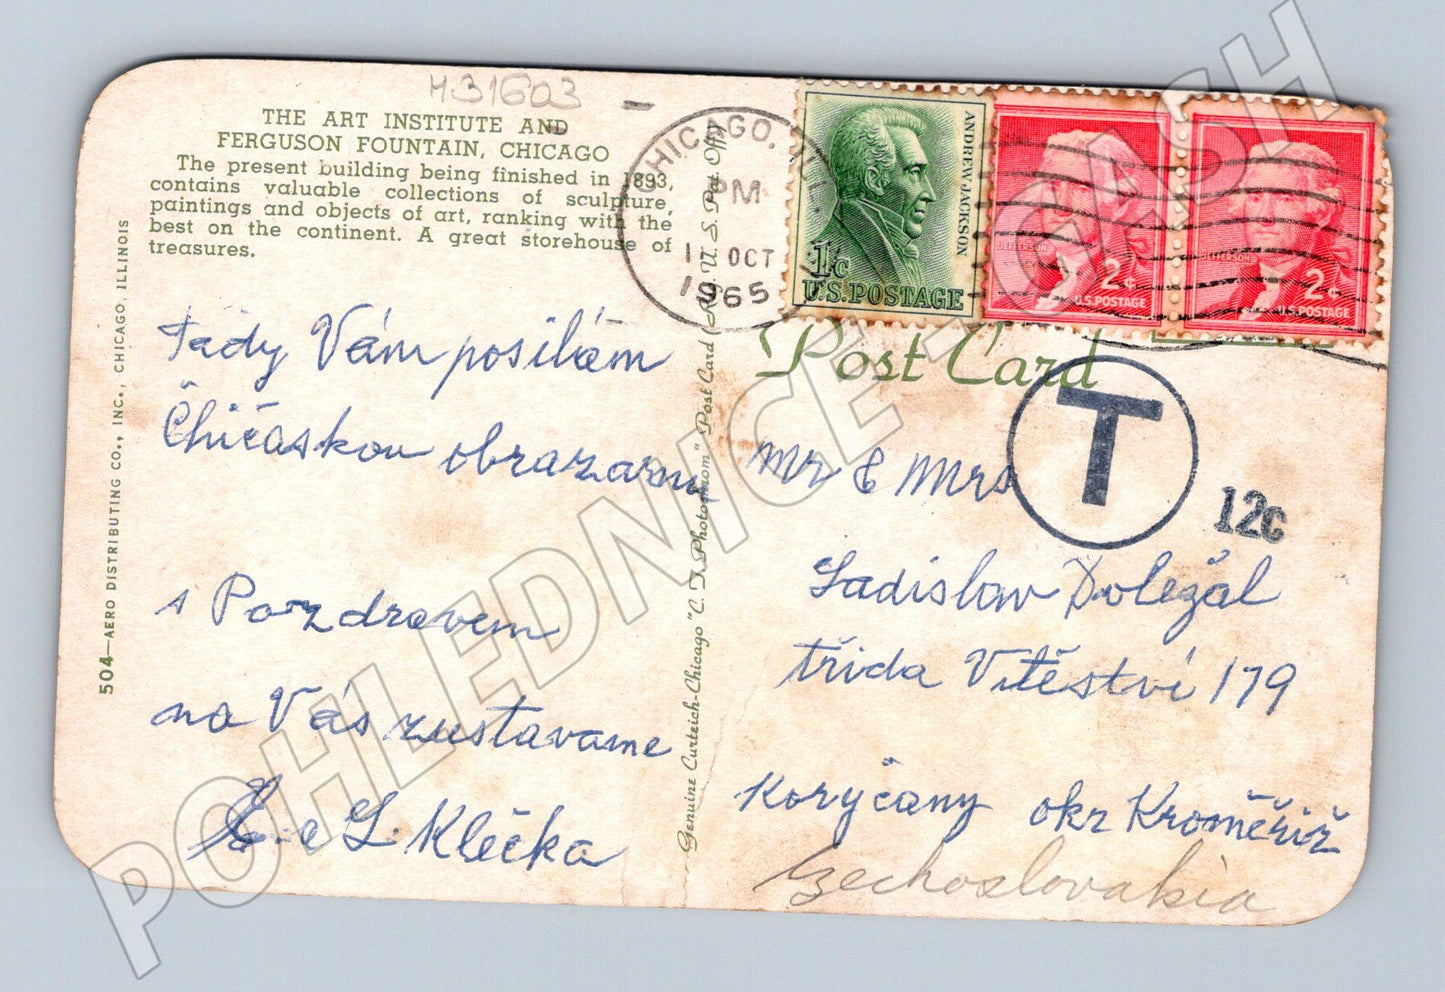 H31603
THE ART INSTITUTE AND
FERGUSON FOUNTAIN, CHICAGO
The present building being finished in 1893,
contains valuable collections of sculpture,
paintings and objects of art, ranking with the
best on the continent. A great storehouse of
treasures.
504—AERO DISTRIBUTING CO., INC., CHICAGO, ILLINOIS
Tády Vám posílám
Čhičaskou obrazarnu
s Pozdravem
na Vás zustavame
L. Klečka
Genuine Curteich-Chicago "C. T. Photochrom" Post Card (Reg. U. S. Pat. Off.)
CHICAGO,
PM
OCT
1965
ANDREW JACKSON
1c
U.S. POSTAGE
JEFFERSON
2¢
U.S. POSTAGE
JEFFERSON
2¢
U.S. POSTAGE
Post Card
T
12c
Mr & Mrs
Ladislav Doležál
třida Vitěství 179
Koryčany okr Kroměřiž
Czechoslovakia
POHLEDNICE - CASH